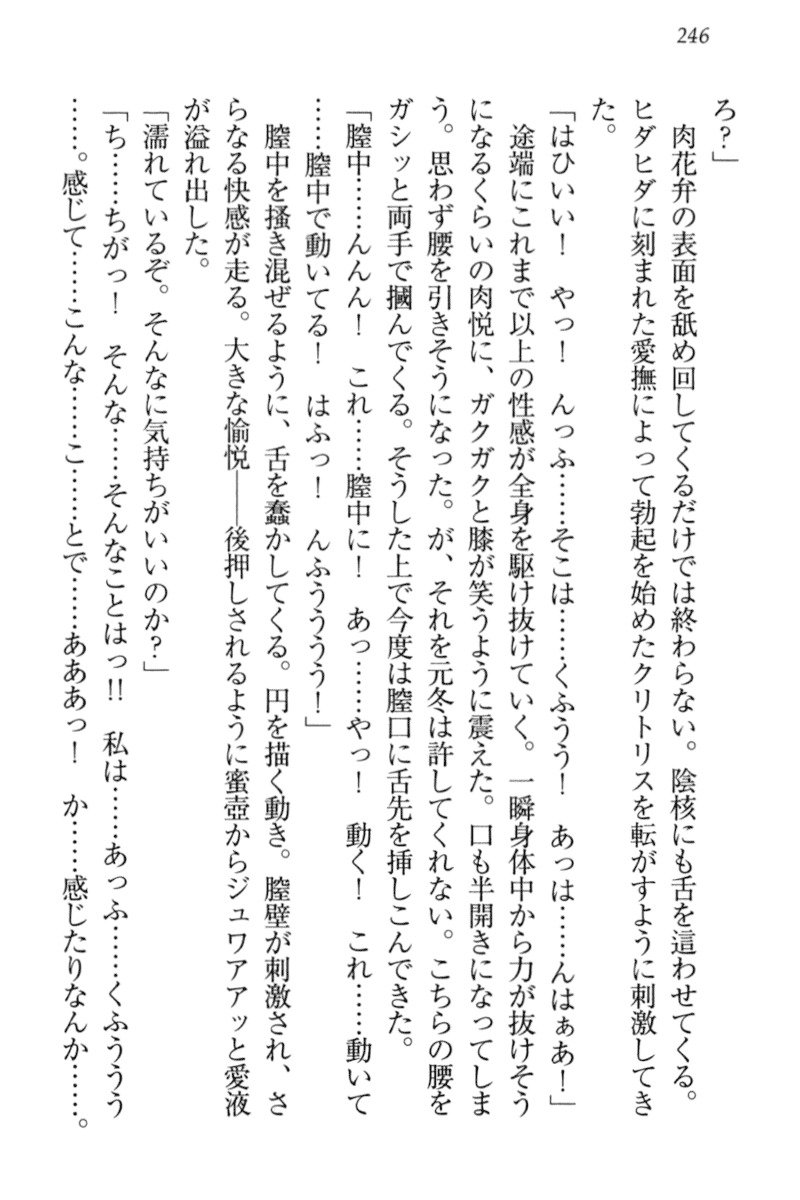 246
ろ？」
　肉花弁の表面を舐め回してくるだけでは終わらない。陰核にも舌を這わせてくる。
ヒダヒダに刻まれた愛撫によって勃起を始めたクリトリスを転がすように刺激してき
た。
「はひいい！　やっ！　んっふ……そこは……くふうう！　あっは……んはぁあ！」
　途端にこれまで以上の性感が全身を駆け抜けていく。一瞬身体中から力が抜けそう
になるくらいの肉悦に、ガクガクと膝が笑うように震えた。口も半開きになってしま
う。思わず腰を引きそうになった。が、それを元冬は許してくれない。こちらの腰を
ガシッと両手で摑んでくる。そうした上で今度は膣口に舌先を挿しこんできた。
「膣中……んんん！　これ……膣中に！　あっ……やっ！　動く！　これ……動いて
……膣中で動いてる！　はふっ！　んふうううう！」
　膣中を掻き混ぜるように、舌を蠢かしてくる。円を描く動き。膣壁が刺激され、さ
らなる快感が走る。大きな愉悦――後押しされるように蜜壺からジュワアアッと愛液
が溢れ出した。
「濡れているぞ。そんなに気持ちがいいのか？」
「ち……ちがっ！　そんな……そんなことはっ!!　私は……あっふ……くふううう
……。感じて……こんな……こ……とで……あああっ！　か……感じたりなんか……。